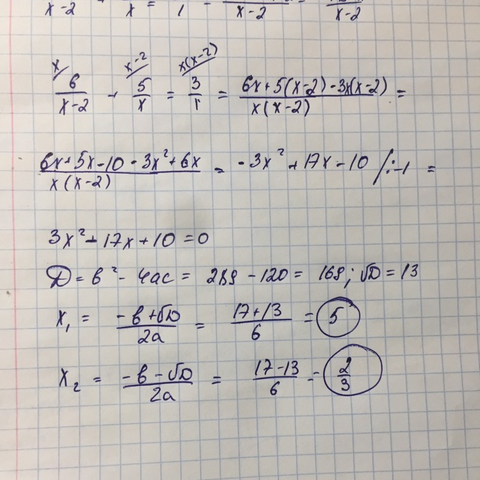 x-2 x = 1 - x-2 x-2
x x-2 x(x-2)
6/(x-2) + 5/x = 3/1 = (6x+5(x-2)-3x(x-2))/(x(x-2)) =
(6x+5x-10-3x²+6x)/(x(x-2)) = -3x²+17x-10 /:-1 =
3x²-17x+10=0
D = в²-4ac = 289-120 = 169; √D = 13
x₁ = (-в+√D)/2a = (17+13)/6 = 5
x₂ = (-в-√D)/2a = (17-13)/6 = 2/3